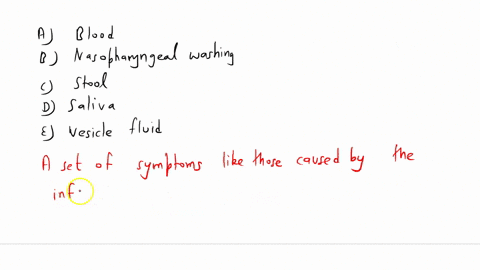 A) Blood
B) Nasopharyngeal washing
C) Stool
D) Saliva
E) Vesicle fluid
A set of symptoms like those caused by the
inf